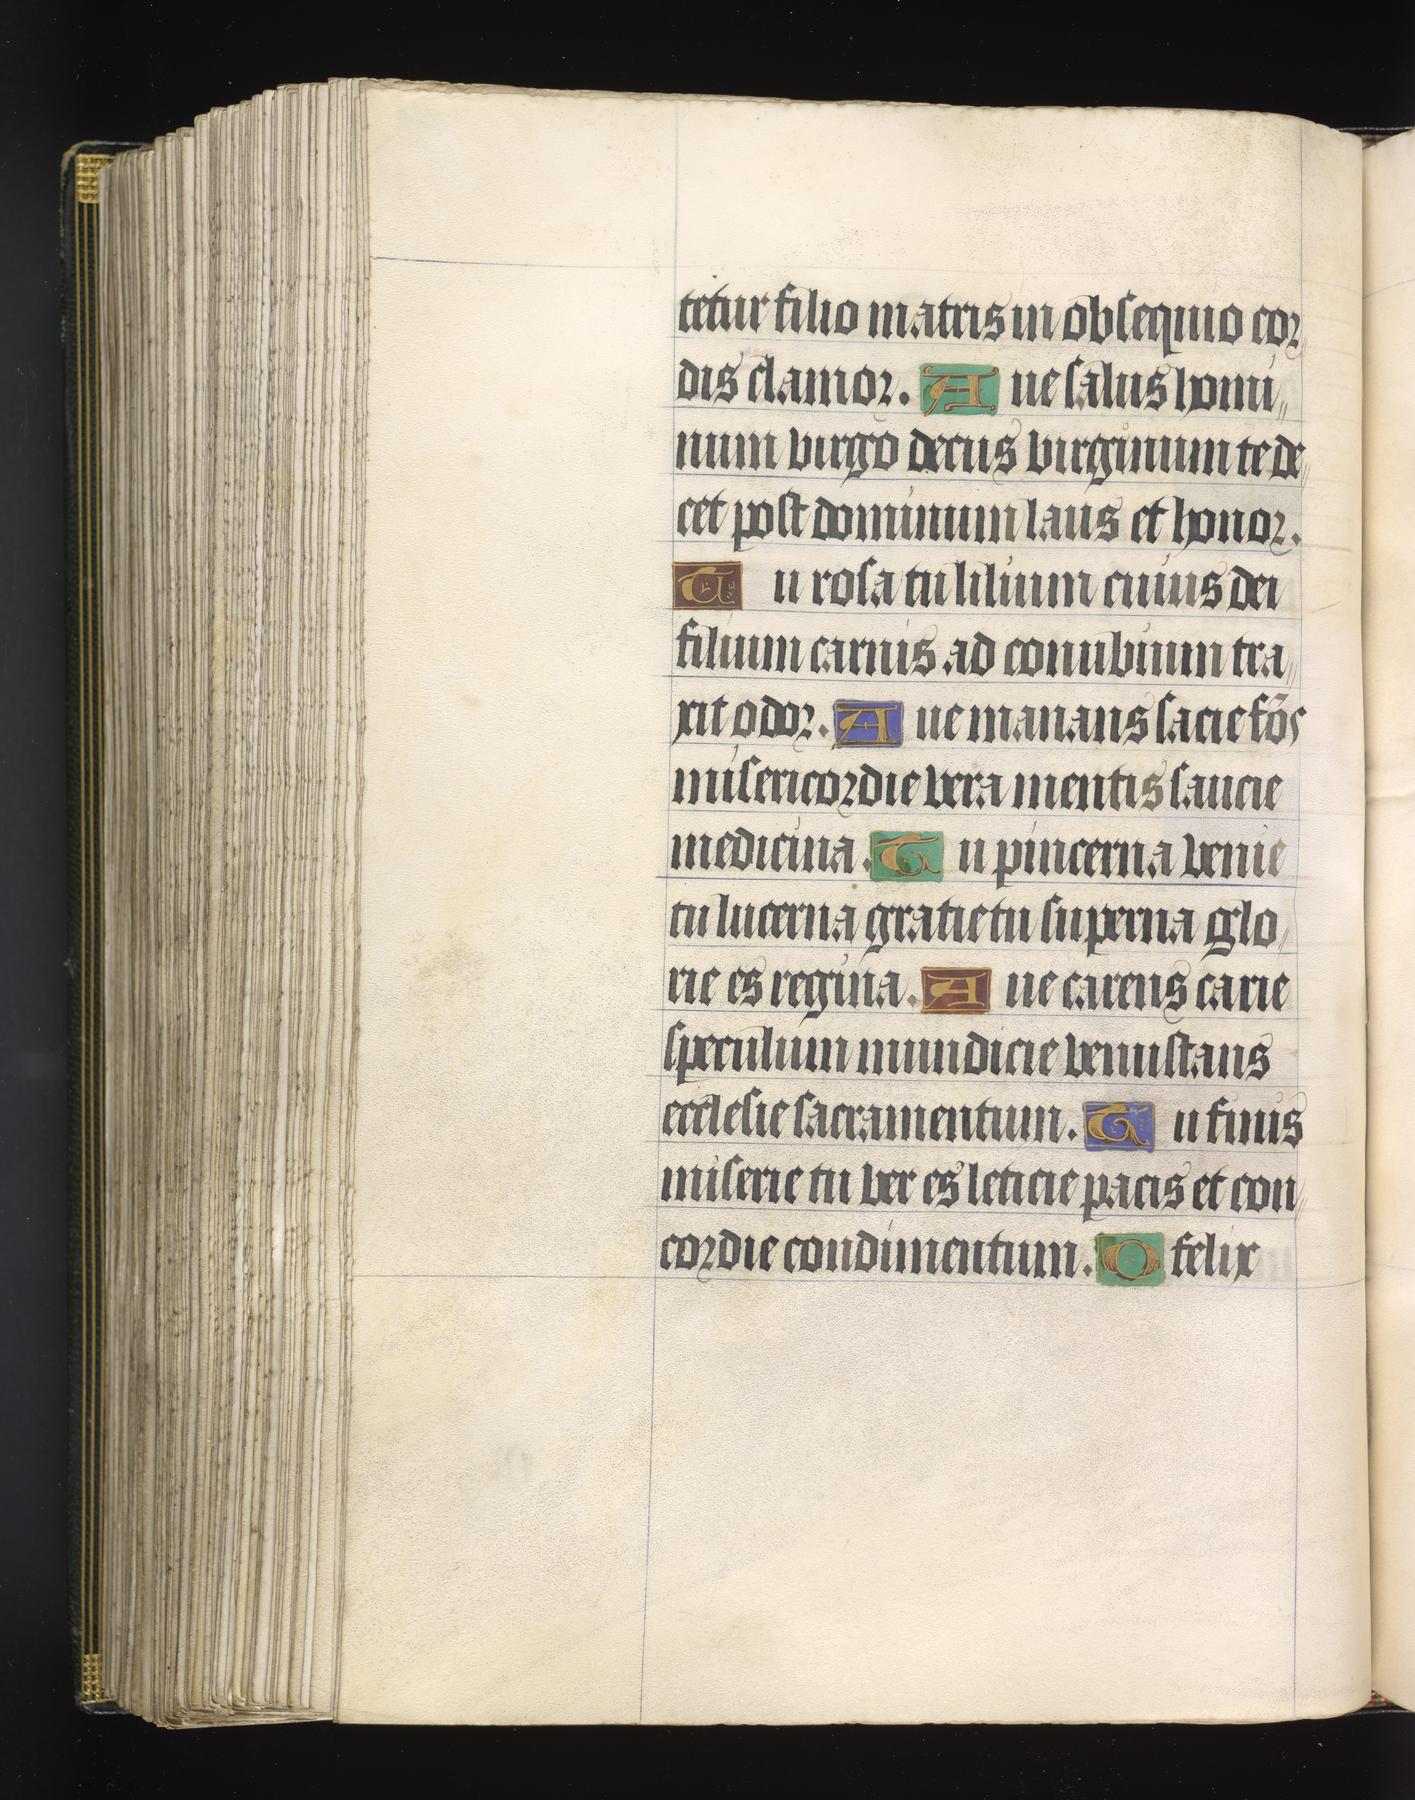 tetur filio matris in obsequio cor
dis clamor. Aue salus homi
num virgo decus virginum te de
cet post dominum laus et honor.
Tu rosa tu lilium cuius dei
filium carnis ad conubium tra
xit odor. Aue manans sacie fōs
misericordie vera mentis saucie
medicina. Tu pincerna venie
tu lucerna gratie tu superna glo
rie es regina. Aue carens carie
speculum mundicie venustans
ecclesie sacramentum. Tu finis
miserie tu ver es leticie pacis et con
cordie condimentum. O felix